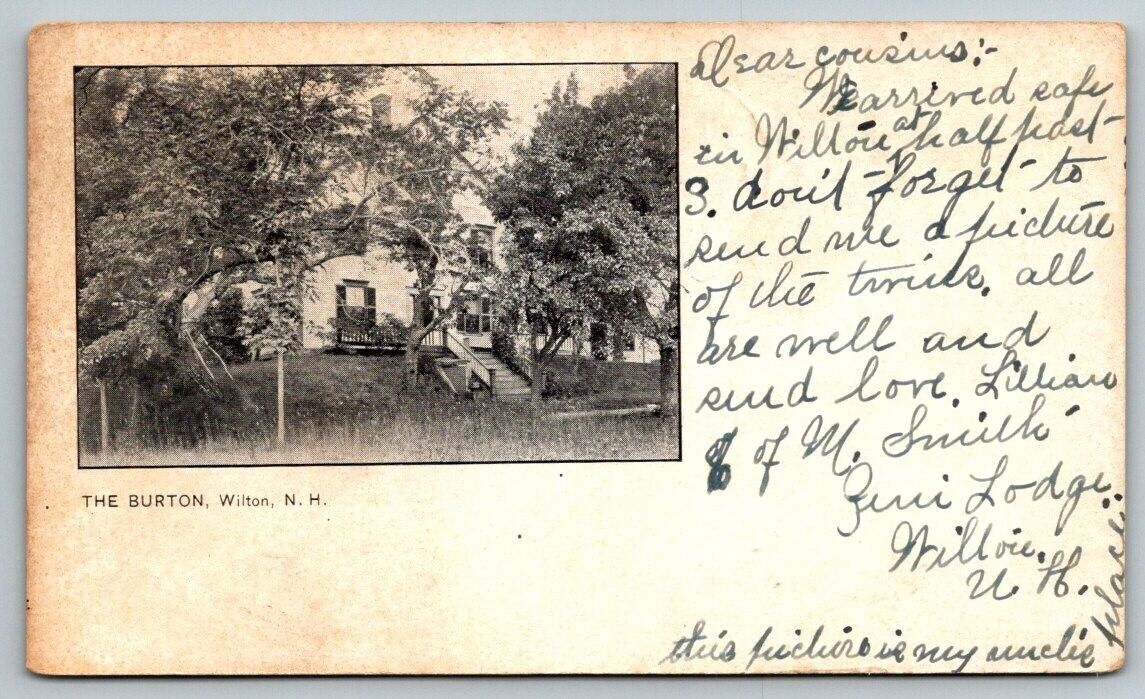 Dear cousins:-
We arrived safe
in Wilton at half past
3. don't forget to
send me a picture
of the twins. all
are well and
send love. Lillian
of M. Smith
Lodge
Wilton.
N. H.
this picture is my uncle's
place
THE BURTON, Wilton, N. H.